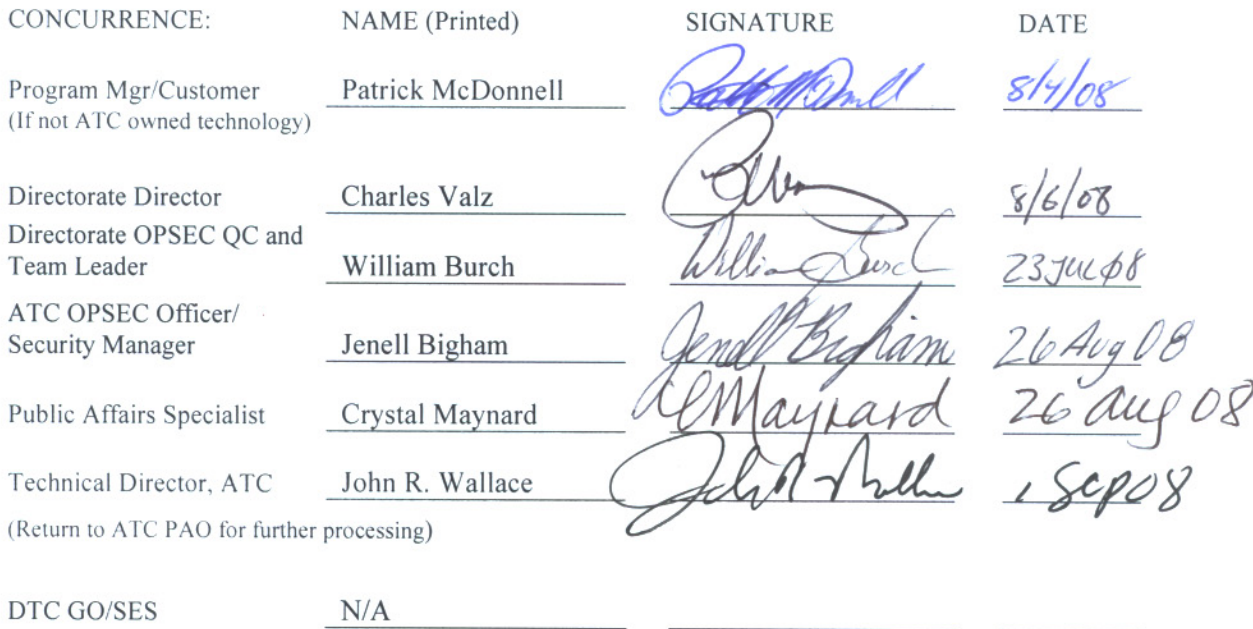 CONCURRENCE: NAME (Printed) SIGNATURE DATE
Program Mgr/Customer Patrick McDonnell 8/4/08
(If not ATC owned technology)
Directorate Director Charles Valz 8/6/08
Directorate OPSEC QC and
Team Leader William Burch William Burch 23 JUL 08
ATC OPSEC Officer/
Security Manager Jenell Bigham Jenell Bigham 26 Aug 08
Public Affairs Specialist Crystal Maynard CMaynard 26 Aug 08
Technical Director, ATC John R. Wallace 1 Sep 08
(Return to ATC PAO for further processing)
DTC GO/SES N/A